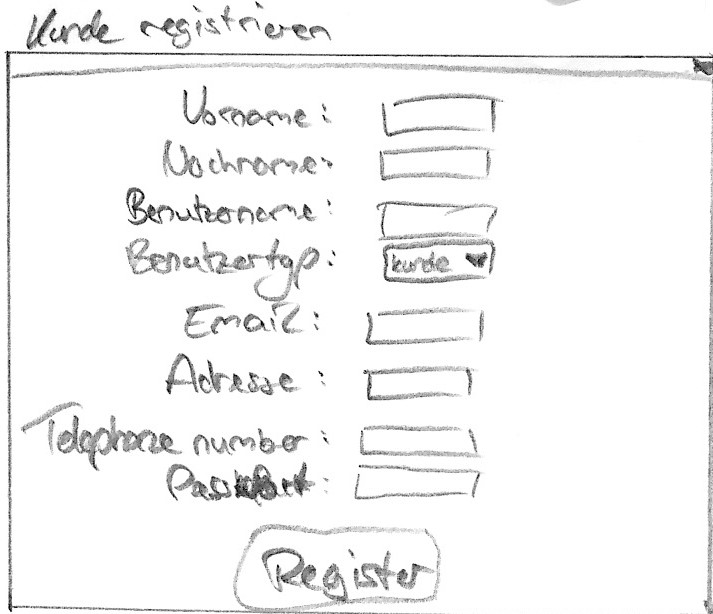 Kunde registrieren
Vorname:
Nachname:
Benutzername:
Benutzertyp: kunde
Email:
Adresse:
Telephone number:
Register